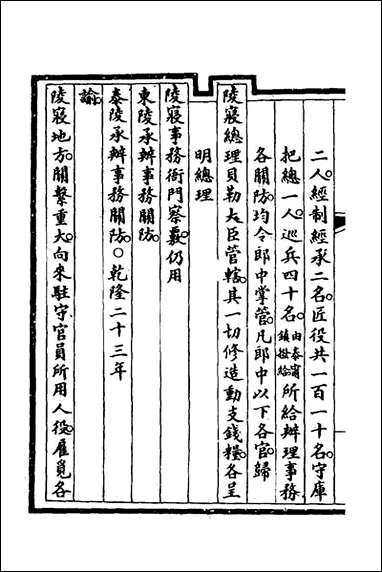 二人經制經承二名匠役共一百一十名守庫
把總一人巡兵四十名由泰甯鎮撥給所給辦理事務
各關防均令郎中掌管凡郎中以下各官歸
陵寢總理貝勒大臣管轄其一切修造動支錢糧各呈
明總理
陵寢事務衙門察覈仍用
東陵承辦事務關防
泰陵承辦事務關防○乾隆二十三年
諭
陵寢地方關繫重大向來駐守官員所用人役雇覓各